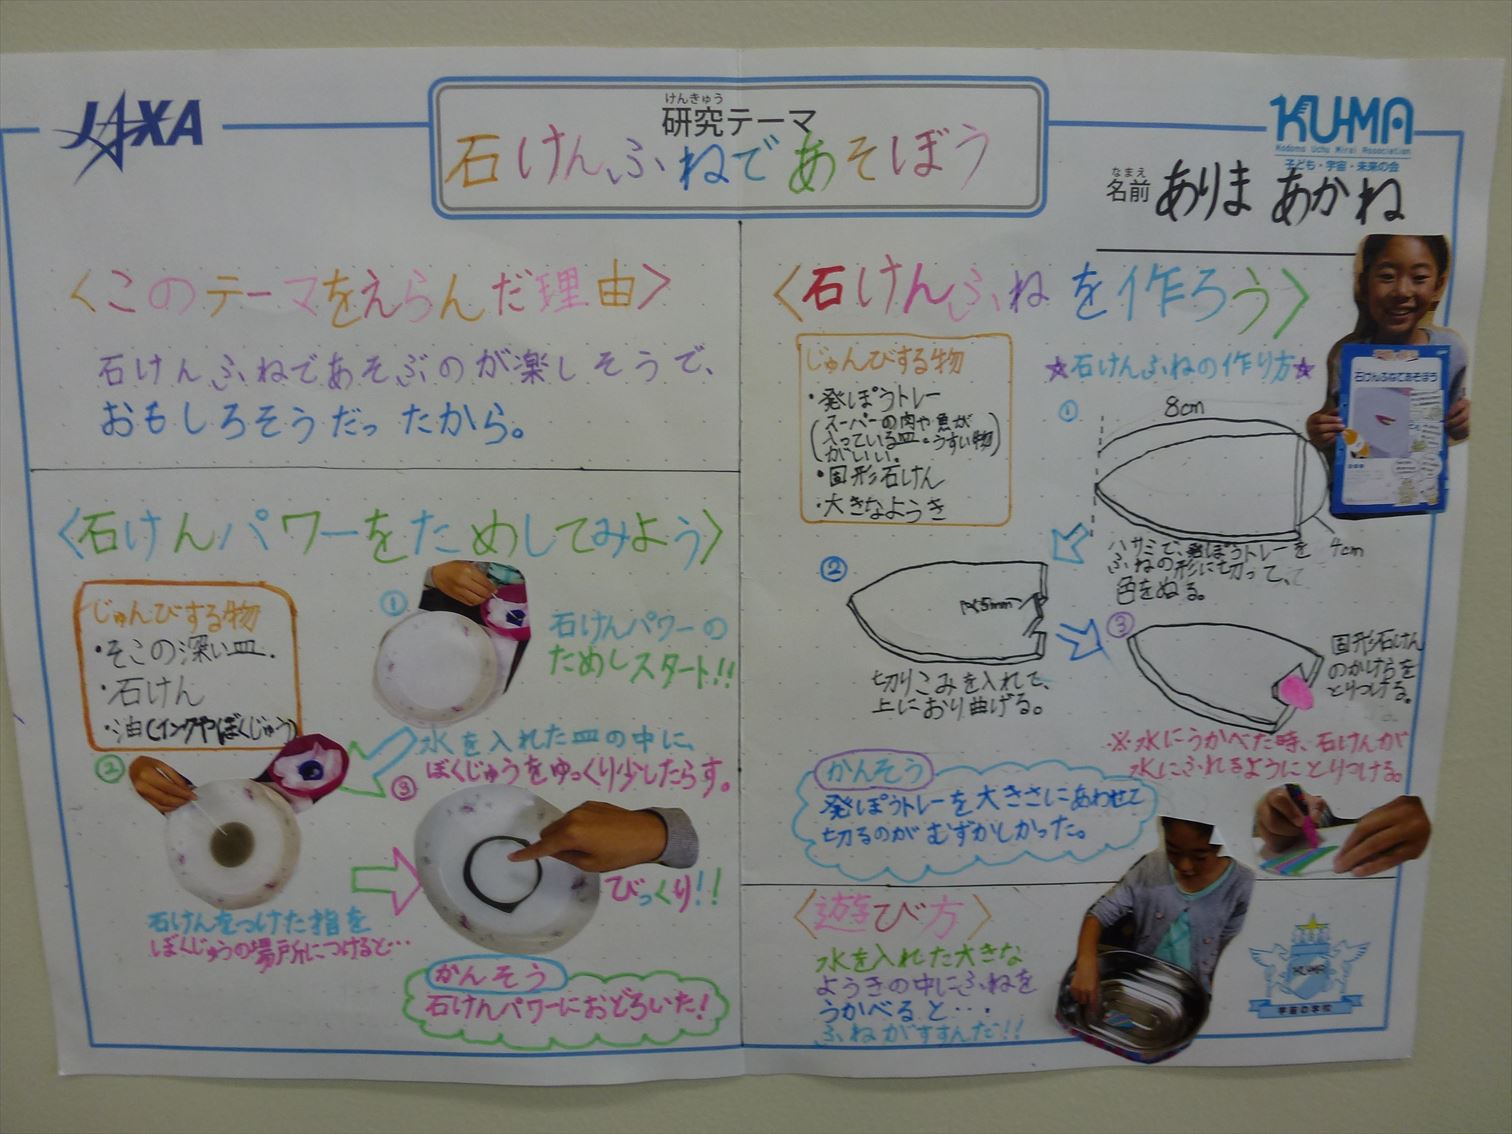 JAXA
けんきゅう
研究テーマ
石けんふねであそぼう
KU-MA
Kodomo Uchu Mirai Association
子ども・宇宙・未来の会
なまえ
名前 ありま あかね
〈このテーマをえらんだ理由〉
石けんふねであそぶのが楽しそうで、
おもしろそうだったから。
〈石けんパワーをためしてみよう〉
じゅんびする物
・そこの深い皿.
・石けん
・油(インクやぼくじゅう)
①
石けんパワーの
ためしスタート!!
水を入れた皿の中に、
ぼくじゅうをゆっくり少したらす。
②
石けんをつけた指を
ぼくじゅうの場所につけると…
③
びっくり!!
かんそう
石けんパワーにおどろいた!
〈石けんふねを作ろう〉
じゅんびする物
・発ぽうトレー
(スーパーの肉や魚が
入っている皿・うすい物
がいい。)
・固形石けん
・大きなようき
☆石けんふねの作り方☆
石けんふねであそぼう
①
8cm
4cm
ハサミで、発ぽうトレーを
ふねの形に切って、
色をぬる。
②
5mm
切りこみを入れて、
上におり曲げる。
③
固形石けん
のかけらを
とりつける。
※水にうかべた時、石けんが
水にふれるようにとりつける。
かんそう
発ぽうトレーを大きさにあわせて
切るのがむずかしかった。
〈遊び方〉
水を入れた大きな
ようきの中にふねを
うかべると…・
ふねがすすんだ!!
KU-MA
宇宙の学校